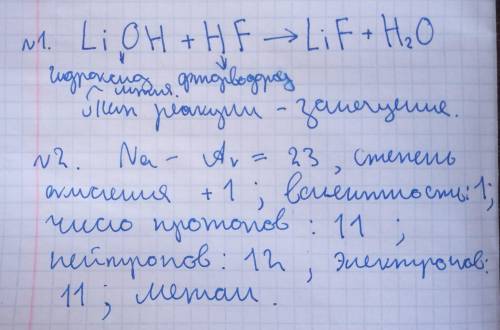 №1. LiOH + HF → LiF + H₂O
гидроксид фтороводород
лития.
Тип реакции - замещение.
№2. Na - Ar = 23, степень
окисления +1; валентность: 1;
число протонов: 11;
нейтронов: 12, электронов:
11; метал.